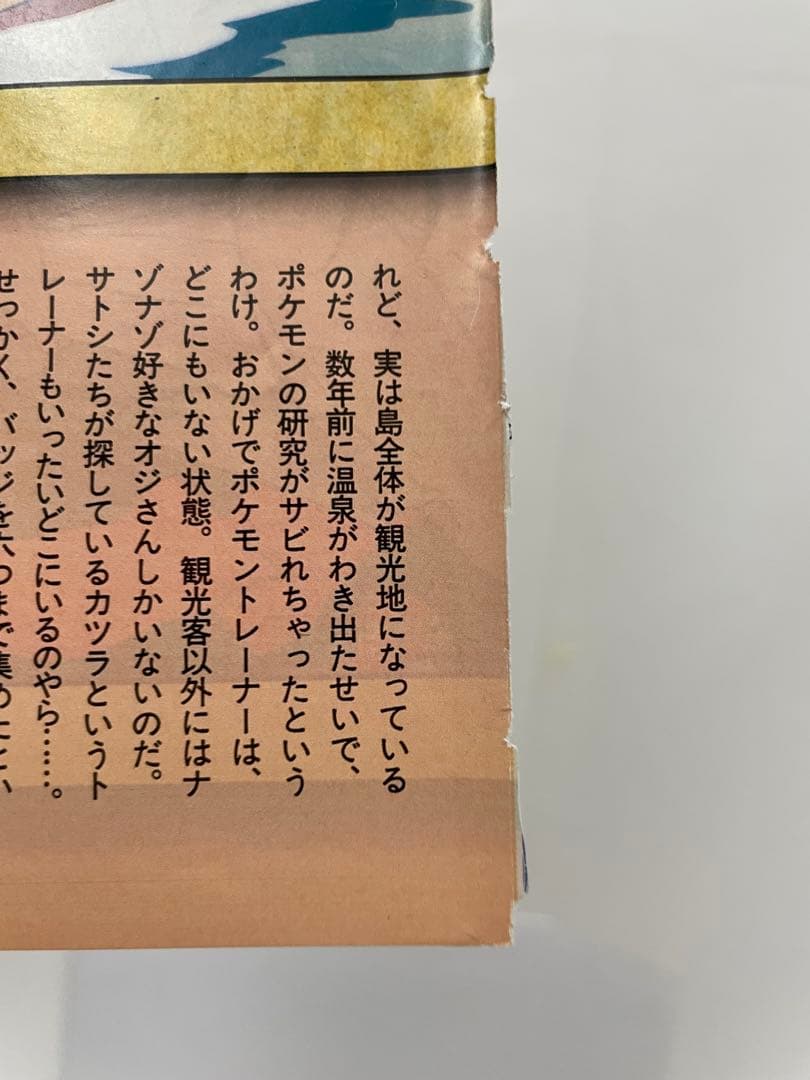 れど、実は島全体が観光地になっている
のだ。数年前に温泉がわき出たせいで、
ポケモンの研究がサビれちゃったという
わけ。おかげでポケモントレーナーは、
どこにもいない状態。観光客以外にはナ
ゾナゾ好きなオジさんしかいないのだ。
サトシたちが探しているカツラというト
レーナーもいったいどこにいるのやら……。
せっかく、バッジを六つまで集めたとい